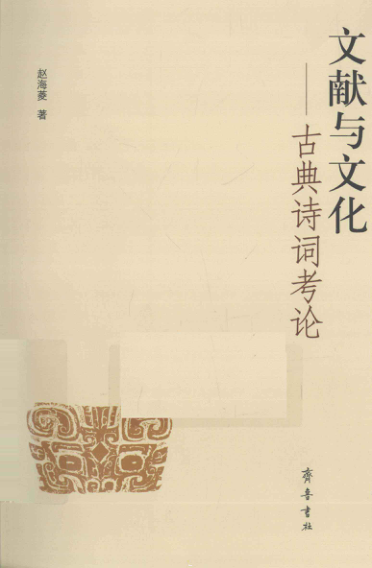 文献与文化
——古典诗词考论
赵海菱 著
齐鲁书社